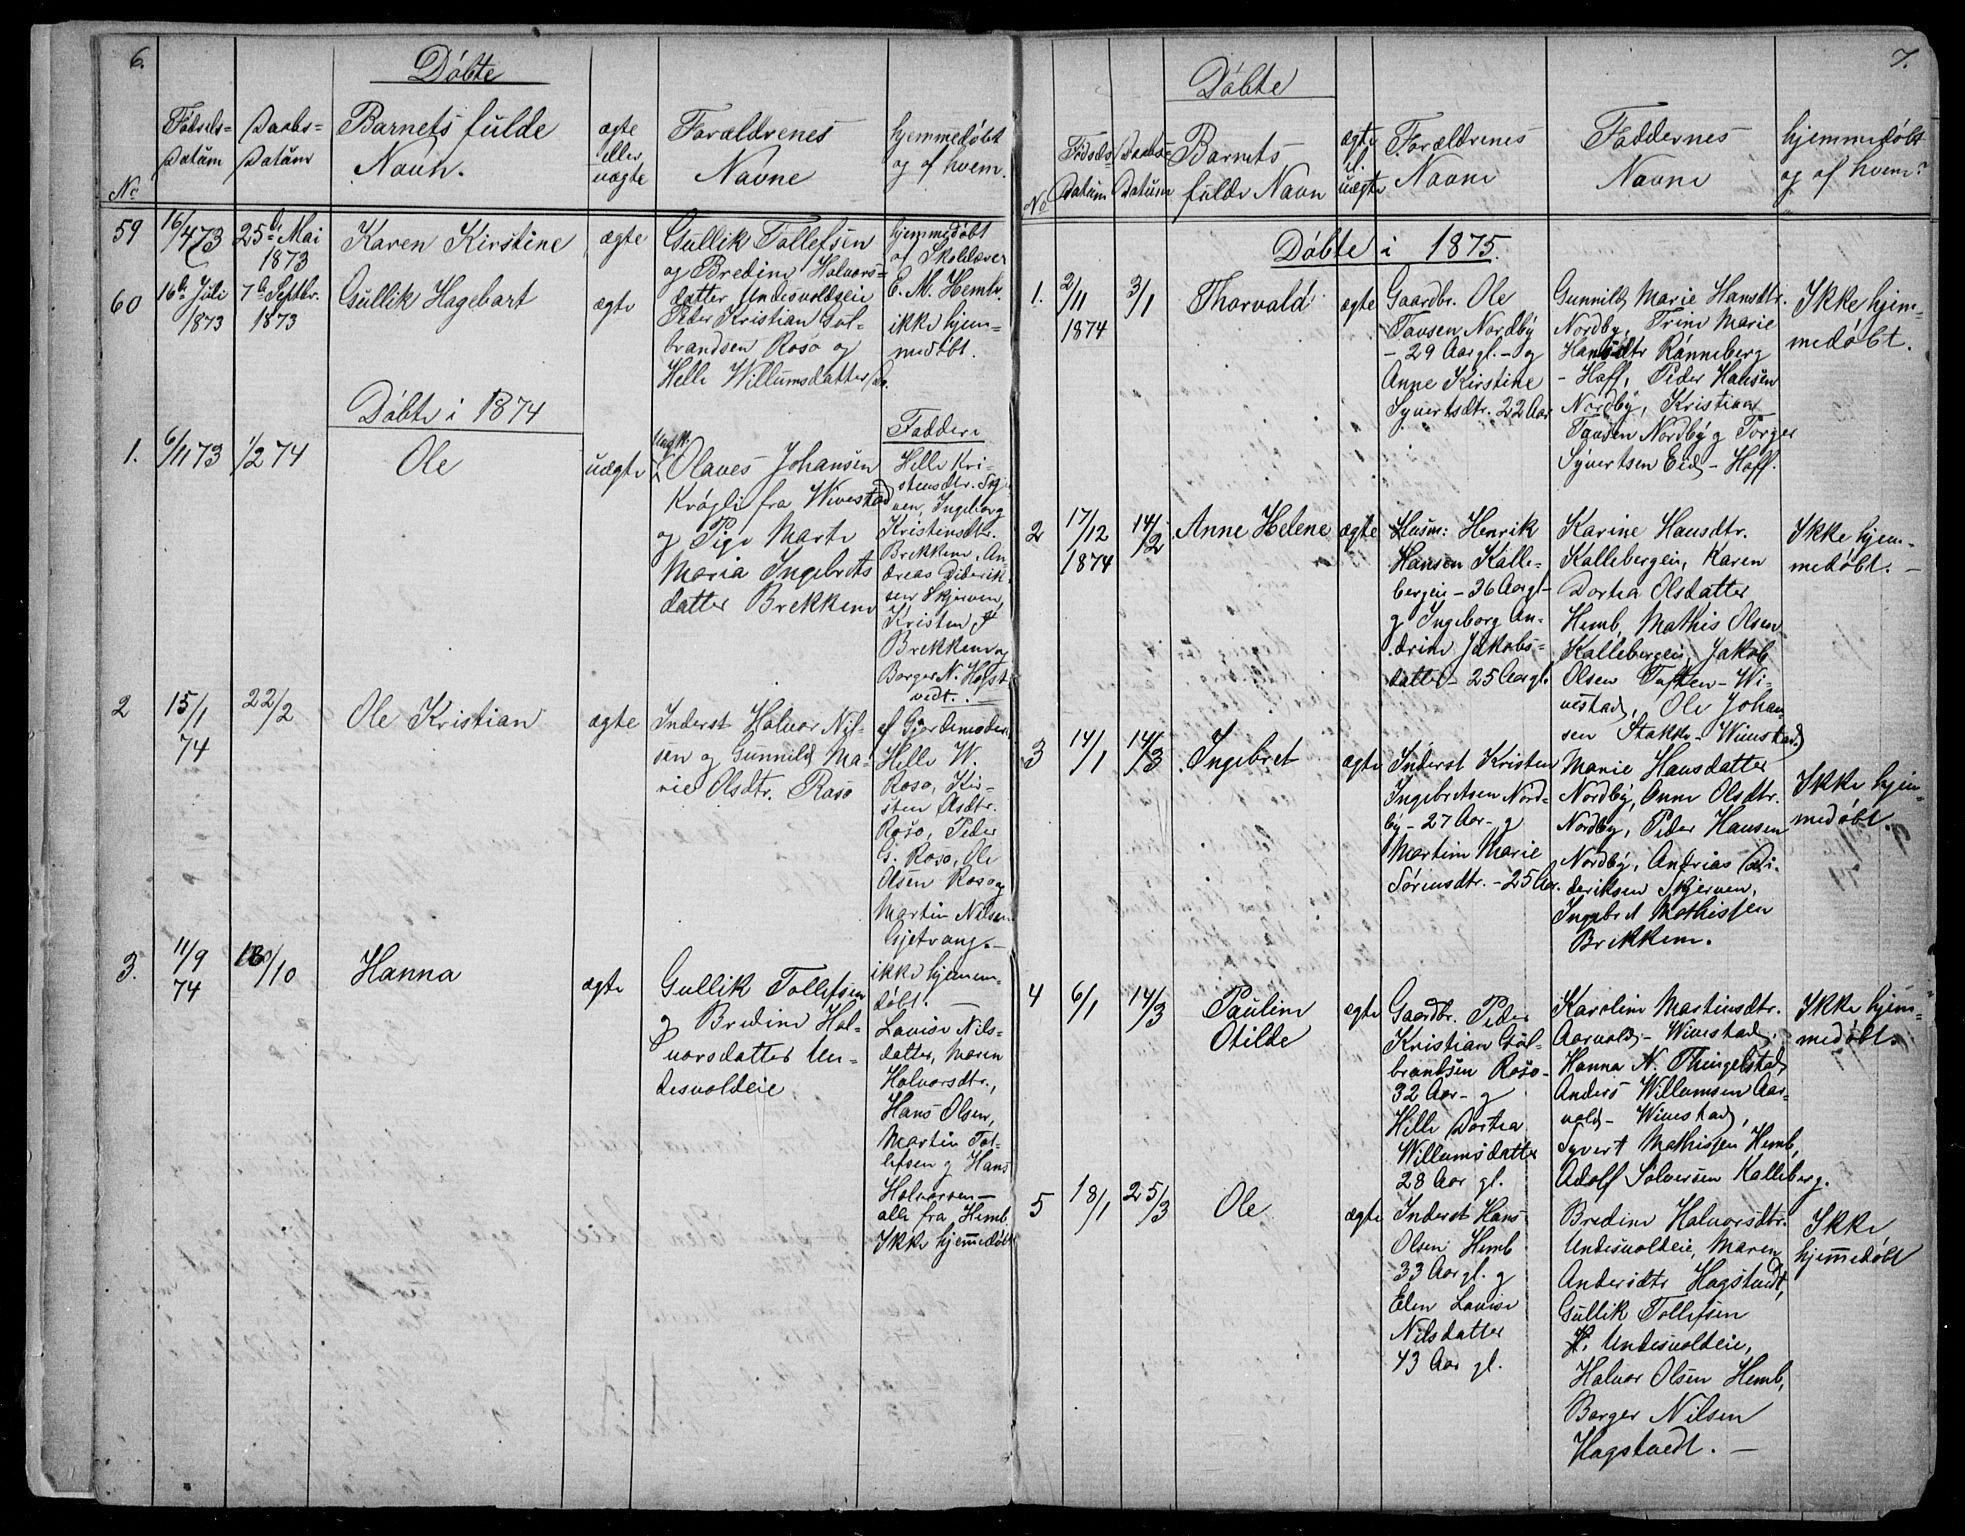 6.
Döbte
No
Födsels-
Datum
Daabs-
Datum
Barnets fulde
Navn.
ægte
eller
uægte
Forældrenes
Navne
hjemmedöbt
og af hvem.
59
16/4 73
25de Mai
1873
Karen Kirstine
ægte
Gullik Tollefsen
og Bredine Halvors-
datter Undesvoldeie
hjemmedöbt
af Skolelærer
E. M. Hemb.
60
16de Juli
1873
7de Septbr.
1873
Gullik Hagebart
ægte
Peder Kristian Gul-
brandsen Roso og
Helle Willumsdatter
ikke hjem-
medöbt.
Döbte i 1874
1.
6/11 73
1/2 74
Ole
uægte
Ungk.
Olaves Johansen
Krögli fra Wivestad
og Pige Marte
Maria Ingebrets
datter Brekkene
Faddere
Helle Kri-
stensdtr.
Ingeborg
Kristensdtr.
Brekkene, An-
dreas Diderik-
sen Skjerven,
Kristen
Brekkene og
Borger N. Hogst-
vedt.
2
15/1
74
22/2
Ole Kristian
ægte
Inderst Halvor Nil-
sen og Gunnild Ma-
rie Olsdtr. Roso
af Gjordemoder
Helle W.
Roso, Kir-
sten Asdtr.
Roso, Peder
G. Roso, Ole
Olsen Roso og
Martin Nilsen
Gjetvang.-
3.
11/9
74
18/10
Hanna
ægte
Gullik Tollefsen
og Bredine Hal-
vorsdatter Un-
desvoldeie
ikke hjemme-
döbt.
Lovise Nils-
datter, Maren
Halvorsdtr.,
Hans Olsen,
Martin Tol-
lefsen og Hans
Halvorsen-
alle fra Hemb.
Ikke hjemedöbt
7.
Döbte
No
Födsels-
Datum
Daabs-
Datum
Barnets-
fulde Navn
ægte
el.
uægte
Forældrenes
Navne
Faddernes
Navne
hjemmedöbt
og af hvem?
Döbte i 1875.
1.
2/11
1874
3/1
Thorvald
ægte
Gaardbr. Ole
Tovsen Nordby
- 29 Aar gl. - og
Anne Kirstine
Syvertsdtr. 22 Aar
Gunnild Marie Hansdtr.
Nordby, Trine Marie
Hansdtr Rönneberg
- Hoff, Peder Hansen
Nordby, Kristian
Tovsen Nordby og Torger
Syvertsen Eid - Hoff.
Ikke hjem-
medöbt.
2
17/12
1874
14/2
Anne Helene
ægte
Husm: Henrik
Hansen Kalle-
bergeie - 36 Aar gl -
og Ingeborg An-
drine Jakobs-
datter - 25 Aar gl.
Karine Hansdtr.
Kallebergeie, Karen
Dortea Olsdatter
Hemb, Mathis Olsen
Kallebergeie, Jakob
Olsen Toften - Wi-
vestad, Ole Johan-
sen Stokke - Wivestad
Ikke hjem-
medöbt. -
3
14/1
14/3
Ingebret
ægte
Inderst Kristen
Ingebretsen Nord-
by - 27 Aar - og
Martine Marie
Sörensdtr. - 25 Aar.
Marie Hansdatter
Nordby, Anne Olsdtr.
Nordby, Peder Hansen
Nordby, Andrias Di-
deriksen Skjerven,
Ingebret Mathissen
Brekkene.
Ikke hjem-
medöbt
4
6/1
14/3
Pauline
Otilde
ægte
Gaardbr. Peder
Kristian Gul-
brandsen Roso -
32 Aar - og
Helle Dortea
Willumsdatter
28 Aar gl.
Karoline Martinsdtr.
Aarvold - Wivestad,
Hanna N. Thingelstad,
Anders Willumsen Aar-
vold - Wivestad,
Syvert Mathissen Hemb,
Adolf Solversen Kalleberg.
Ikke hjem-
medöbt.
5
18/1
25/3
Ole
ægte
Inderst Hans
Olsen Hemb
33 Aar gl. og
Elen Lovise
Nilsdatter
43 Aar gl.
Bredine Halvorsdtr.
Undesvoldeie, Maren
Andersdtr Hogstvedt,
Gullik Tollefsen
Undesvoldeie,
Halvor Olsen Hemb,
Borger Nilsen
Hogstvedt. -
Ikke
hjemedöbt